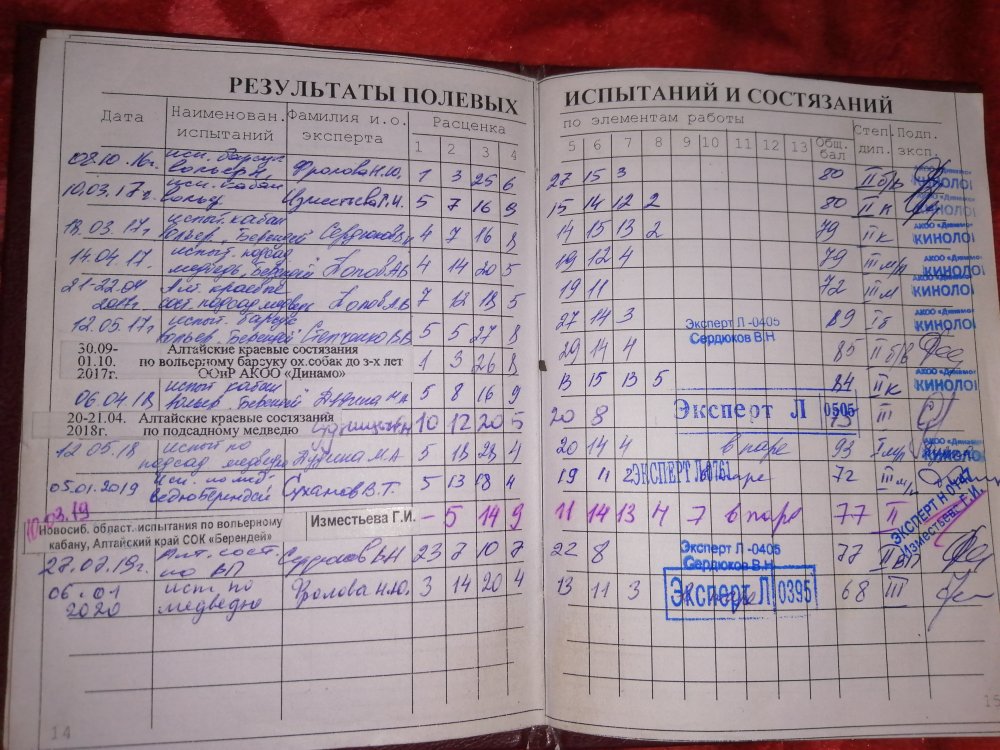 РЕЗУЛЬТАТЫ ПОЛЕВЫХ ИСПЫТАНИЙ И СОСТЯЗАНИЙ
Дата Наименован. испытаний Фамилия и.о. эксперта Расценка по элементам работы Общ. бал Степ. дип. Подп. эксп.
1 2 3 4 5 6 7 8 9 10 11 12 13
08.10.16г. исп. барсук вольерн. Фролова Н.Ю. 1 3 25 6 27 15 3 80 II б/в
АКОО «Динамо» КИНОЛО
10.03.17г. исп. кабан вольер Изместьева Г.И. 5 7 16 9 15 14 12 2 80 II к
КИНОЛОГ
18.03.17г. испыт. кабан вольер. Берендей Сердюков В.Н 4 7 16 8 14 15 13 2 79 II к
АКОО «Динамо» КИНОЛОГ
14.04.17. испыт. подсад медведь, Берендей Попов А.В 4 14 20 5 19 12 4 79 III м/п
АКОО «Динамо» КИНОЛОГ
21-22.04 2017г. Алт. краевые сост. подсад медведь Попов А.В 7 12 18 5 19 11 72 III м
АКОО «Динамо» КИНОЛОГ
12.05.17г. испыт. барсук вольер. Берендей 5 5 27 8 27 14 3 89 I б
АКОО «Динамо» КИНОЛОГ
Эксперт Л -0405
Сердюков В.Н
30.09-01.10. 2017г. Алтайские краевые состязания по вольерному барсуку ох.собак до 3-х лет ООиР АКОО «Динамо» 1 3 26 8 29 14 4 85 II б/в
06.04.18 испыт кабан вольер. Берендей М.А 5 8 16 9 13 15 13 5 84 II к
АКОО «Динамо» КИНОЛОГ
20-21.04. 2018г. Алтайские краевые состязания по подсадному медведю 10 12 20 5 20 8 III
Эксперт Л 0505
12.05.18 испыт по подсад. медведю М.А 5 18 23 4 20 14 4 в паре 93 I м/р
АКОО «Динамо» КИНОЛОГ
05.01.2019 Исп. по медведю Берендей Суханов В.Т. 5 13 18 4 19 11 2 в паре 72 III м/п
ЭКСПЕРТ Л 0761
10.03.19 Новосиб. област. испытания по вольерному кабану, Алтайский край СОК «Берендей» Изместьева Г.И. - 5 14 9 11 14 13 4 7 в паре 77 II
ЭКСПЕРТ Н 0147
Изместьева Г.И.
27.07.19г. Алт. сост. по ВП Сердюков В.Н 23 7 10 7 22 8 77 II ВП
Эксперт Л -0405
Сердюков В.Н
06.01 2020 исп по медведю Фролова Н.Ю. 3 14 20 4 13 11 3 68 III
Эксперт Л 0395
14
15